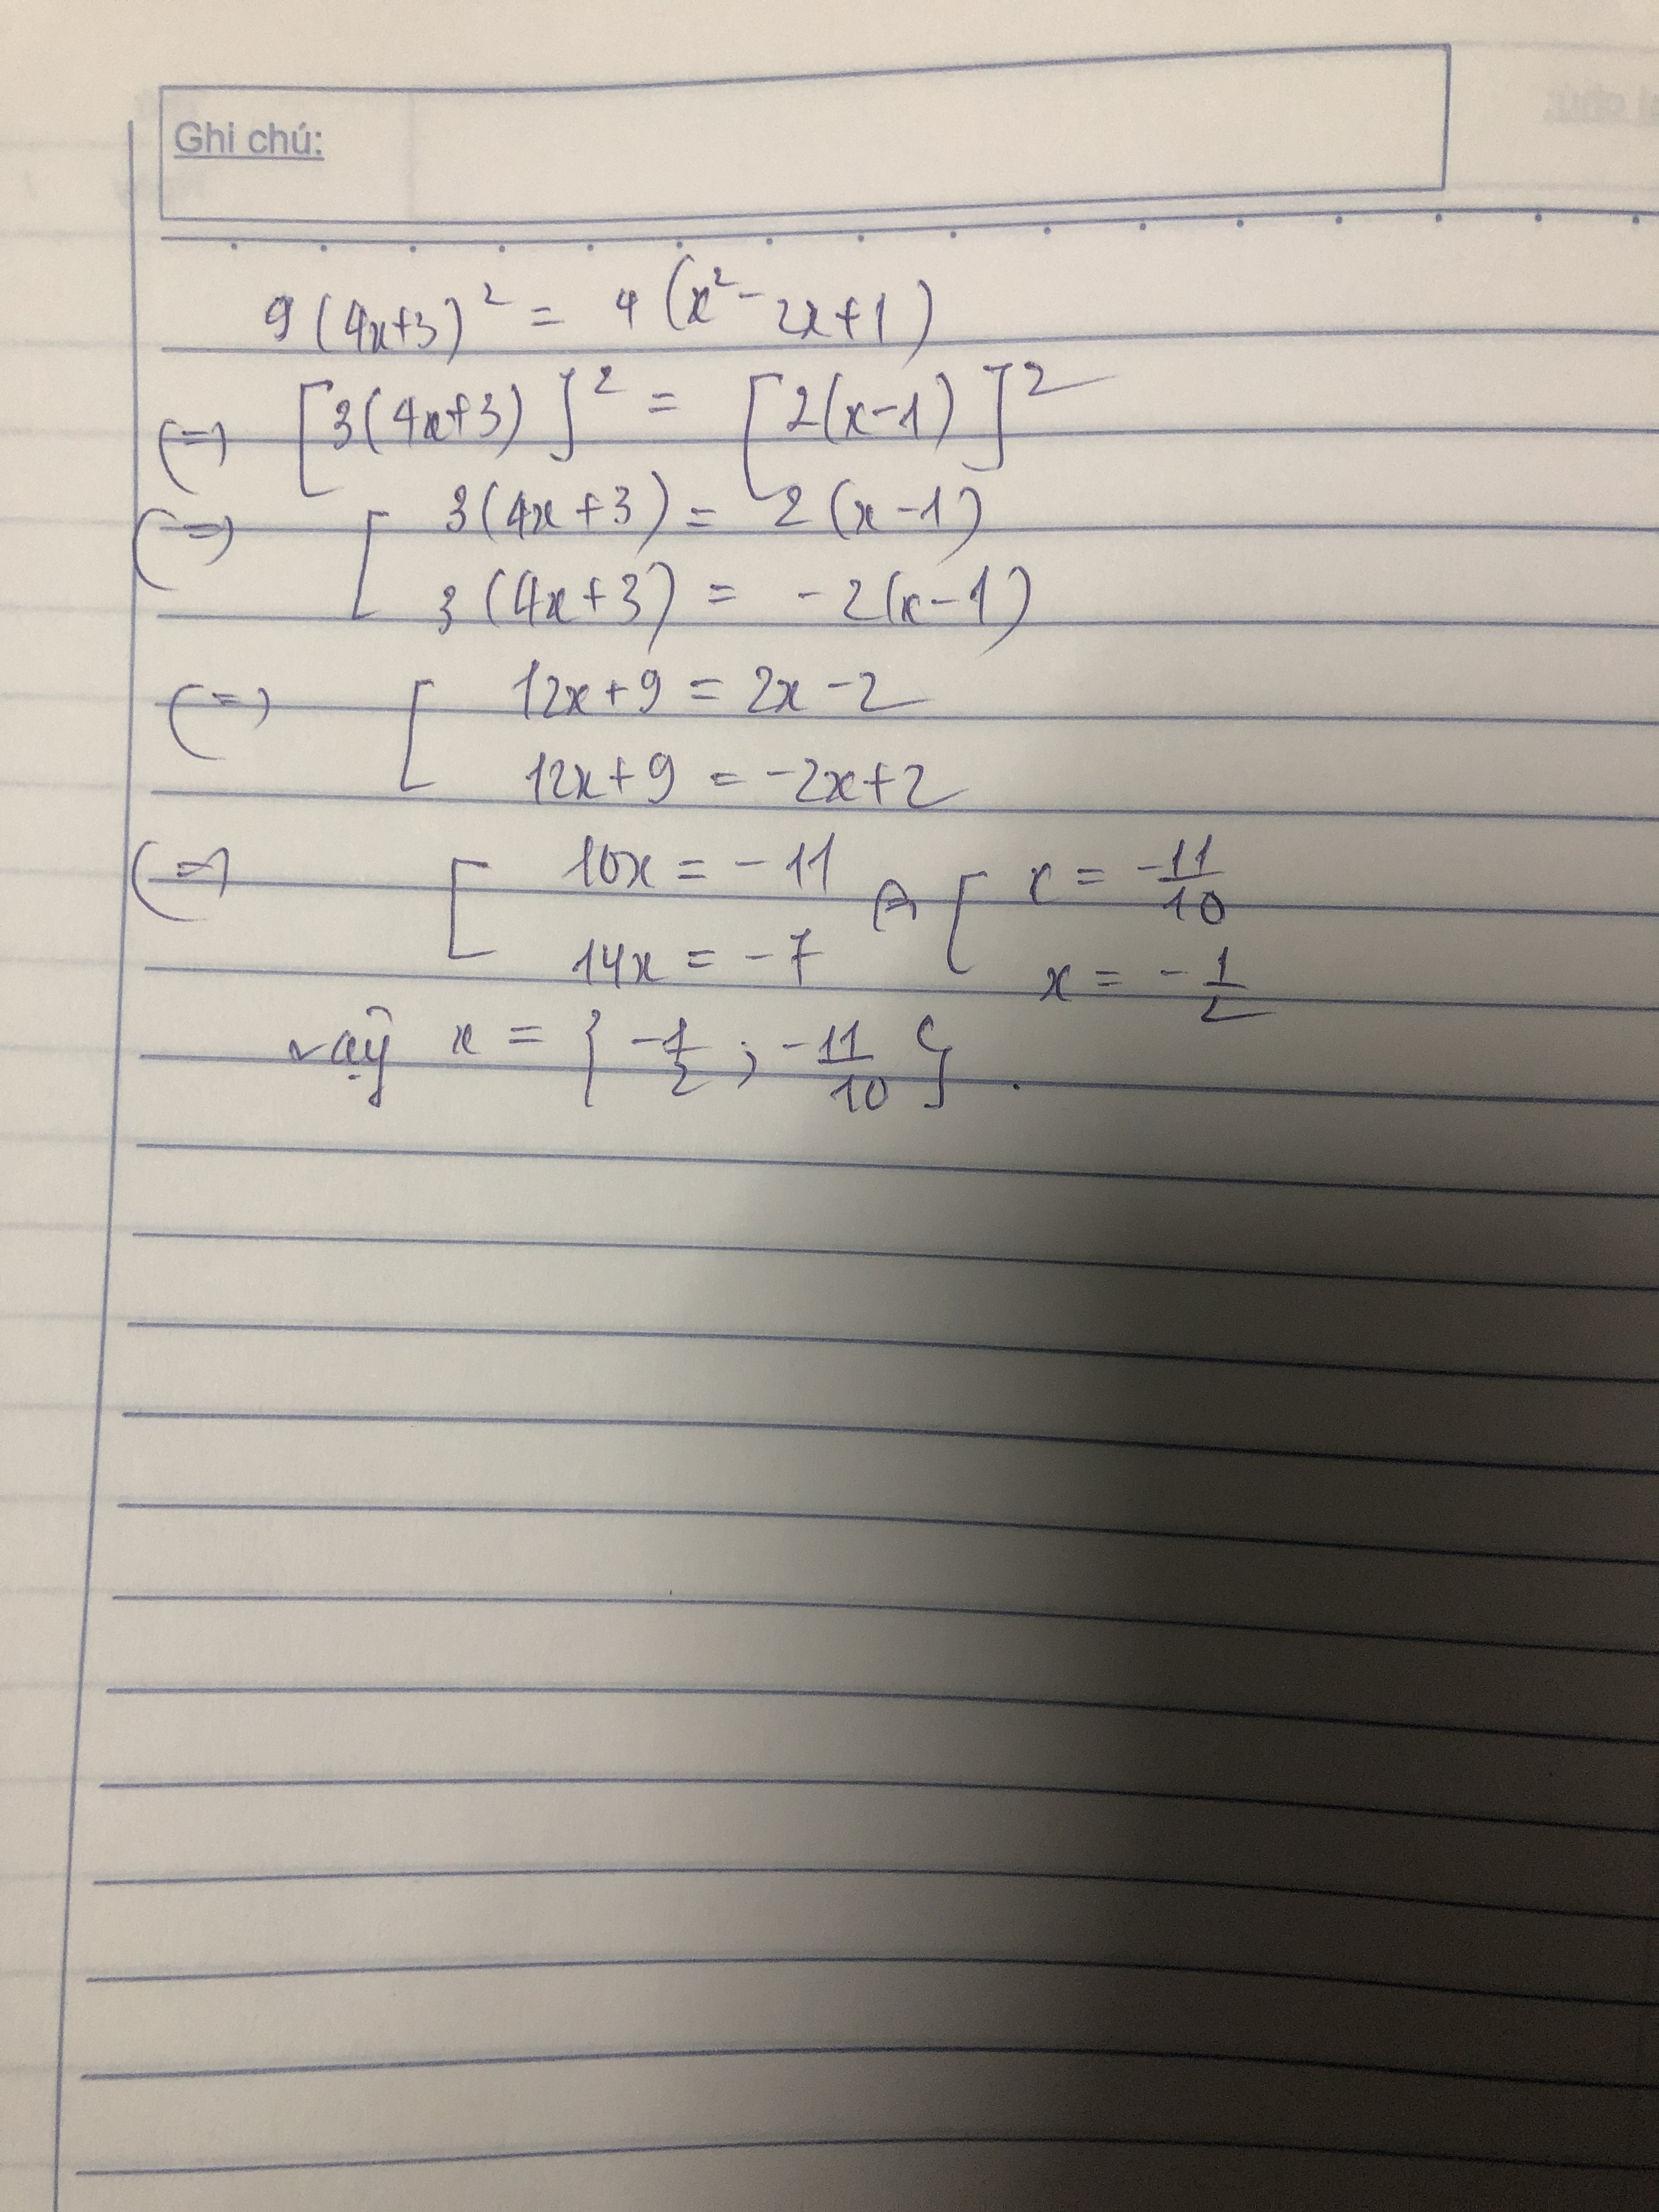 Ghi chú:
9(4x+3)² = 4(x²-2x+1)
(=) [3(4x+3)]² = [2(x-1)]²
(=) [ 3(4x+3) = 2(x-1)
3(4x+3) = -2(x-1)
(=) [ 12x+9 = 2x-2
12x+9 = -2x+2
(=) [ 10x = -11 (=) [ x = -11/10
14x = -7 x = -1/2
vậy x = { -1/2 ; -11/10 } .